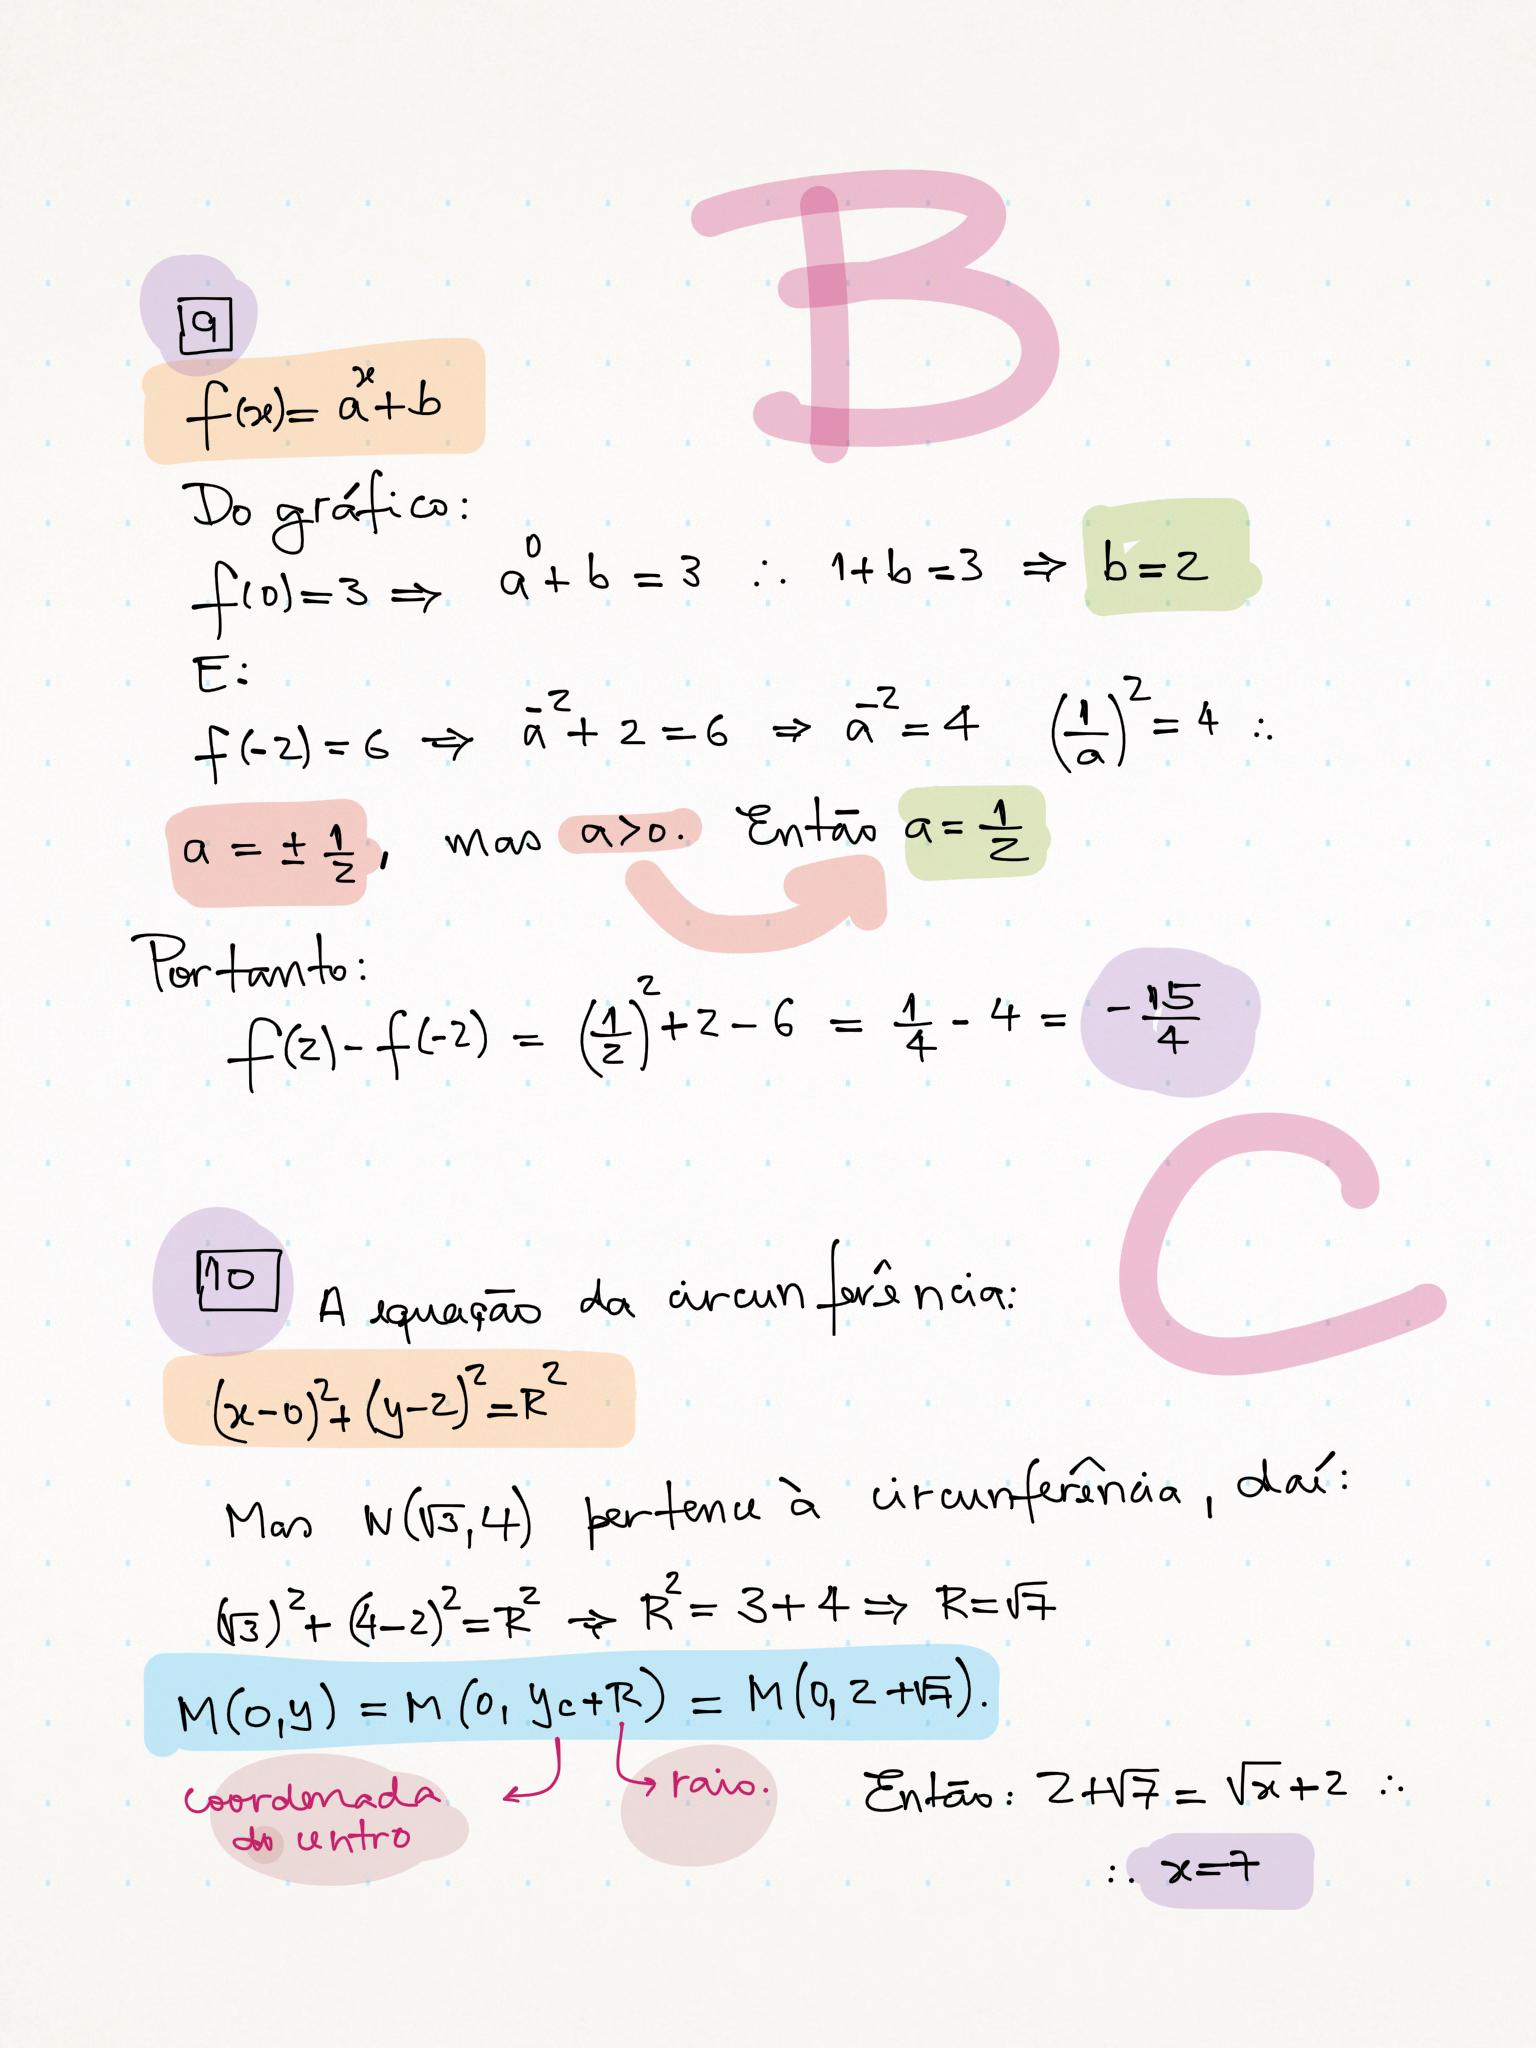 B
9
f(x) = a^x + b
Do gráfico:
f(0) = 3 ⇒ a^0 + b = 3 ∴ 1 + b = 3 ⇒ b = 2
E:
f(-2) = 6 ⇒ a^-2 + 2 = 6 ⇒ a^-2 = 4 (1/a)^2 = 4 ∴
a = ± 1/2, mas a>0. Então a = 1/2
Portanto:
f(2) - f(-2) = (1/2)^2 + 2 - 6 = 1/4 - 4 = -15/4
C
10 A equação da circunferência:
(x-0)^2 + (y-2)^2 = R^2
Mas N(√3, 4) pertence à circunferência, daí:
(√3)^2 + (4-2)^2 = R^2 ⇒ R^2 = 3+4 ⇒ R = √7
M(0,y) = M(0, yc+R) = M(0, 2+√7).
coordenada
do centro
raio.
Então: 2+√7 = √x + 2 ∴
∴ x = 7